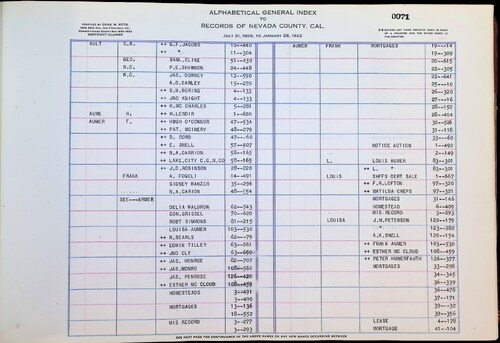 ALPHABETICAL GENERAL INDEX
TO
RECORDS OF NEVADA COUNTY, CAL.
0071
COMPILED BY CHAS. N. KITTS
COPYRIGHT CLAIMED
AULT C.N. ++ G.F. JACOBS 10-440
++ " 11-304
GEO. SAML. CLINE 51-439
N.C. P.E. SHANNON 24-448
W.C. JAS. DORSEY 12-590
A.D. EARLEY 15-250
++ S.H. BORING 4-133
++ JNO KNIGHT 4-133
++ WM CHARLES 5-281
AUNE H. ++ R. LENOIR 1-600
AUNER F. ++ HUGH O'CONNOR 47-534
++ PAT. MCINERY 48-279
++ D. DORD 47-60
++ E. SNELL 57-607
++ N.A. CARRION 58-165
++ LAKE, CITY C.G.M.CO 58-165
++ J.D. ROBINSON 228-20
FRANK A. FOGELI 14-491
SIDNEY RANZER 35-296
++ N.A. CARION 48-154
SEE---AUMER
DELIA WALDRON 62-543
CON. GRISSEL 70-620
ROBT SIMMONS 81-215
LOUISA AUMER 103-530
++ N. SEARLS 62-79
++ EDWIN TILLEY 63-261
++ JNO ELY 63-650
++ JAS. MONROE 82-707
++ JAS. MONRO 108-560
JAS. PENROSE 126-420
++ ESTHER MC CLOUD 108-459
HOMESTEADS 3-491
3-400
MORTGAGES 13-136
18-552
MIS RECORD 3-277
3-293
AUMER FRANK MORTGAGES 19-14
20-615
22-305
22-641
25-10
26-320
27-16
28-152
28-404
30-526
31-118
33-60
NOTICE ACTION 1-492
2-149
L. LOUIS AUNER 83-301
++ L. " 83-301
LOUIS SHFFS CERT SALE 1-667
++ F.R. LOFTON 97-320
++ MATILDA CREPS 97-321
MORTGAGES 31-146
HOMESTEAD 6-409
MIS RECORD 3-293
LOUISA J.M. PETERSON 120-179
" 123-282
A.K. SNELL 120-154
++ FRANK AUMER 103-530
++ ESTHER MC CLOUD 108-459
++ PETER HUMERFAUTH 126-377
MORTGAGES 33-298
34-345
36-339
36-478
37-171
39-32
39-356
LEASE 4-178
MORTGAGE 41-104
SEE NEXT PAGE FOR CONTINUANCE OF THE ABOVE NAMES OR ANY NEW NAMES OCCURRING BETWEEN